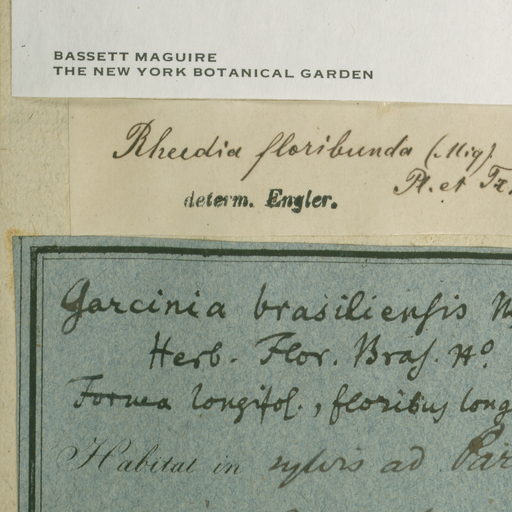 BASSETT MAGUIRE
THE NEW YORK BOTANICAL GARDEN
Rheedia floribunda (Miq)
Pl. et Tr.
determ. Engler.
Garcinia brasiliensis
Herb. Flor. Bras. No.
Forma longifol., floribus long
Habitat in sylvis ad Par